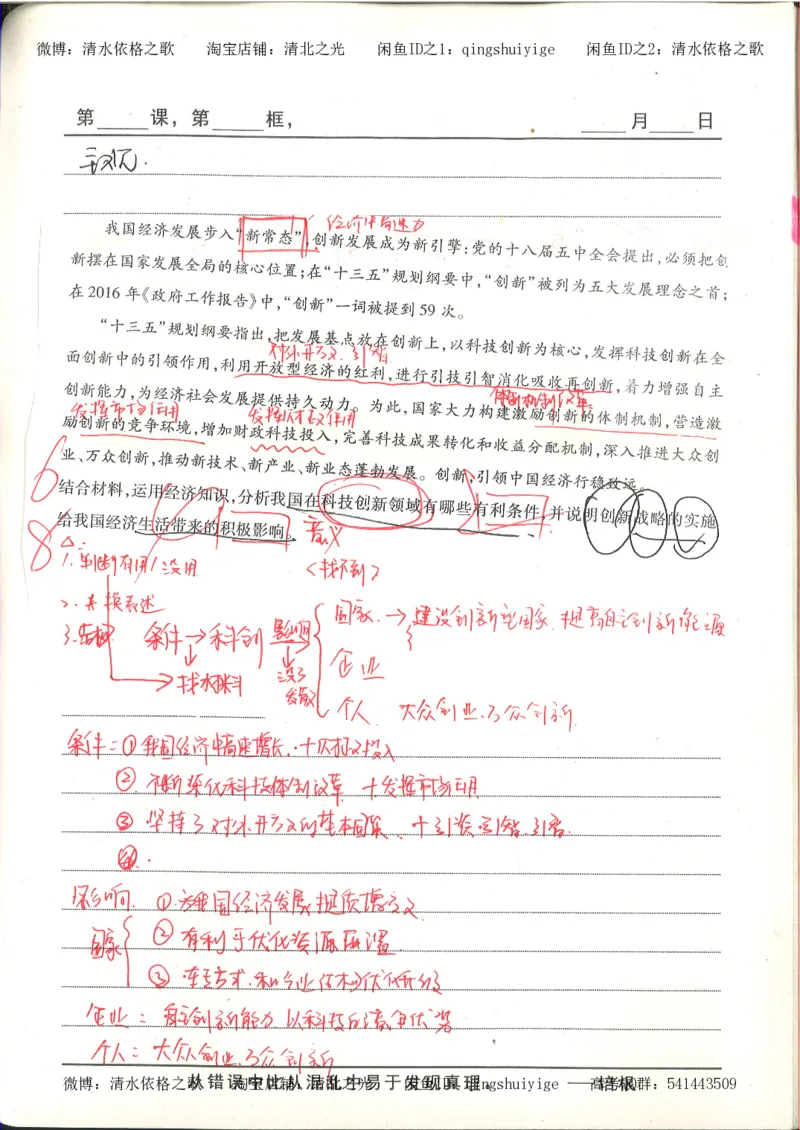 微博：清水依格之歌 淘宝店铺：清北之光 闲鱼ID之1：qingshuiyige 闲鱼ID之2：清水依格之歌
第 课，第 框， 月 日
主观.
经济中高速
我国经济发展步入“新常态”，创新发展成为新引擎：党的十八届五中全会提出，必须把创
新摆在国家发展全局的核心位置；在“十三五”规划纲要中，“创新”被列为五大发展理念之首；
在2016年《政府工作报告》中，“创新”一词被提到59次。
“十三五”规划纲要指出，把发展基点放在创新上，以科技创新为核心，发挥科技创新在全
对外开放、引智
面创新中的引领作用，利用开放型经济的红利，进行引技引智消化吸收再创新，着力增强自主
体制机制改革
创新能力，为经济社会发展提供持久动力。为此，国家大力构建激励创新的体制机制，营造激
发挥市场作用 发挥财政作用
励创新的竞争环境，增加财政科技投入，完善科技成果转化和收益分配机制，深入推进大众创
业、万众创新，推动新技术、新产业、新业态蓬勃发展。创新，引领中国经济行稳致远。
6 结合材料，运用经济知识，分析我国在科技创新领域有哪些有利条件，并说明创新战略的实施
8 给我国经济生活带来的积极影响。 意义
1. 判断有用/没用 <找不到>
2. 转换表述
3. 结构 条件→科创 影响
国家→建设创新型国家、提高自主创新能力
→找水材料 没了 发散
企业
个人 大众创业、万众创新
条件：① 我国经济中高速增长，+财政投入
② 不断深化科技体制改革 +发挥市场作用
③ 坚持了对外开放的基本国策、+引资引智.引技.
④.
影响 ① 为我国经济发展提质增效
国家 ② 有利于优化资源配置
③ 转变方式.和产业结构优化升级
企业：自主创新能力 以科技的竞争优势
个人：大众创业、万众创新
从错误中比从混乱中易于发现真理。 ——培根
微博：清水依格之歌 淘宝店铺：清北之光 闲鱼ID：qingshuiyige 高考QQ群：541443509